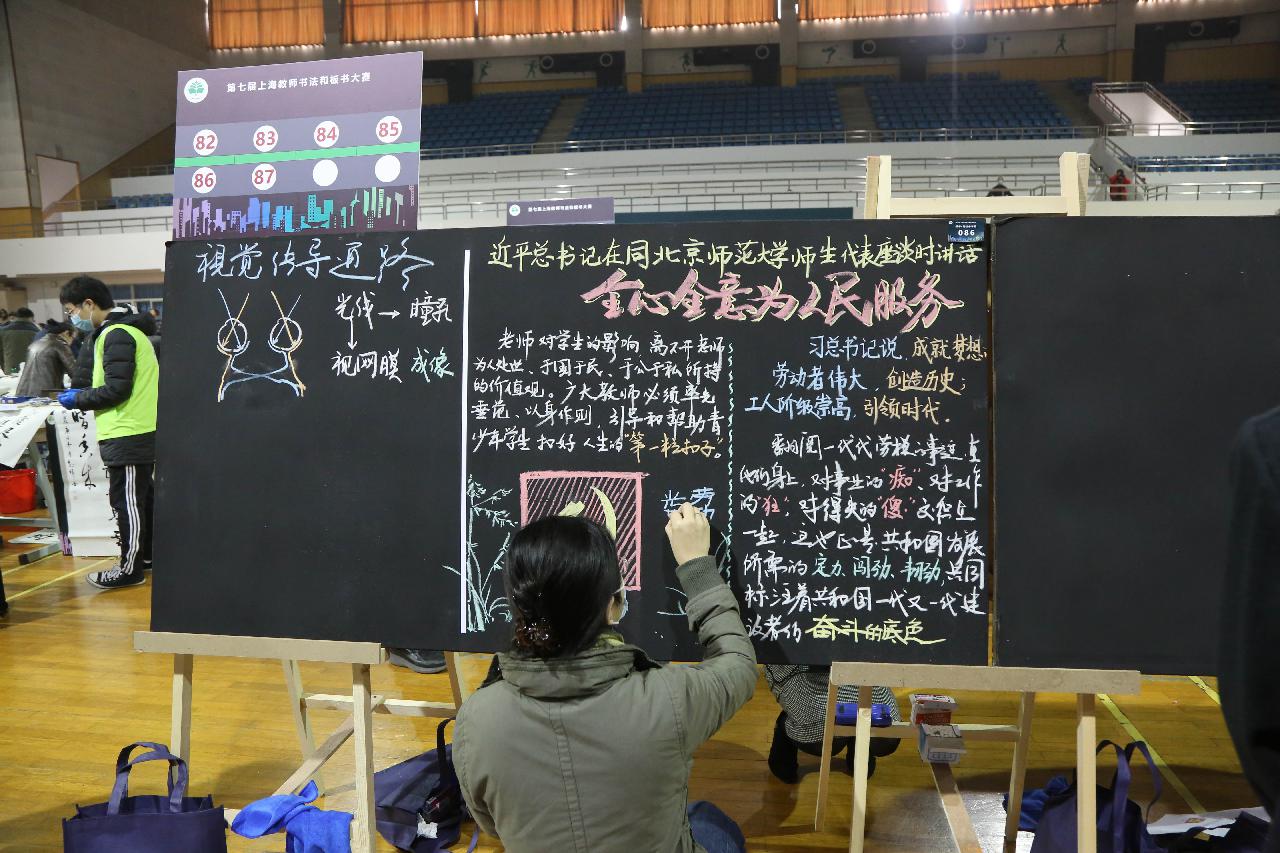 第七届上海教师书法和板书大赛
82 83 84 85
86 87
第七届上海教师书法和板书大赛
086
视觉传导通路
光线→瞳孔
↓
视网膜 成像
近平总书记在同北京师范大学师生代表座谈时讲话
全心全意为人民服务
老师对学生的影响 离不开老师
为人处世、于国于民、于公于私所持
的价值观。广大教师必须率先
垂范、以身作则，引导和帮助青
少年学生扣好人生的“第一粒扣子”。
习总书记说，成就梦想
劳动者伟大，创造历史；
工人阶级崇高，引领时代．
翻阅一代代劳模事迹，直
他们身上，对事业的“痴”、对工作
的“狂”，对得失的“傻”交织在
一起，这也正是共和国发展
所需的定力、闯劲、韧劲，共同
标注着共和国一代又一代建
设者的奋斗的底色